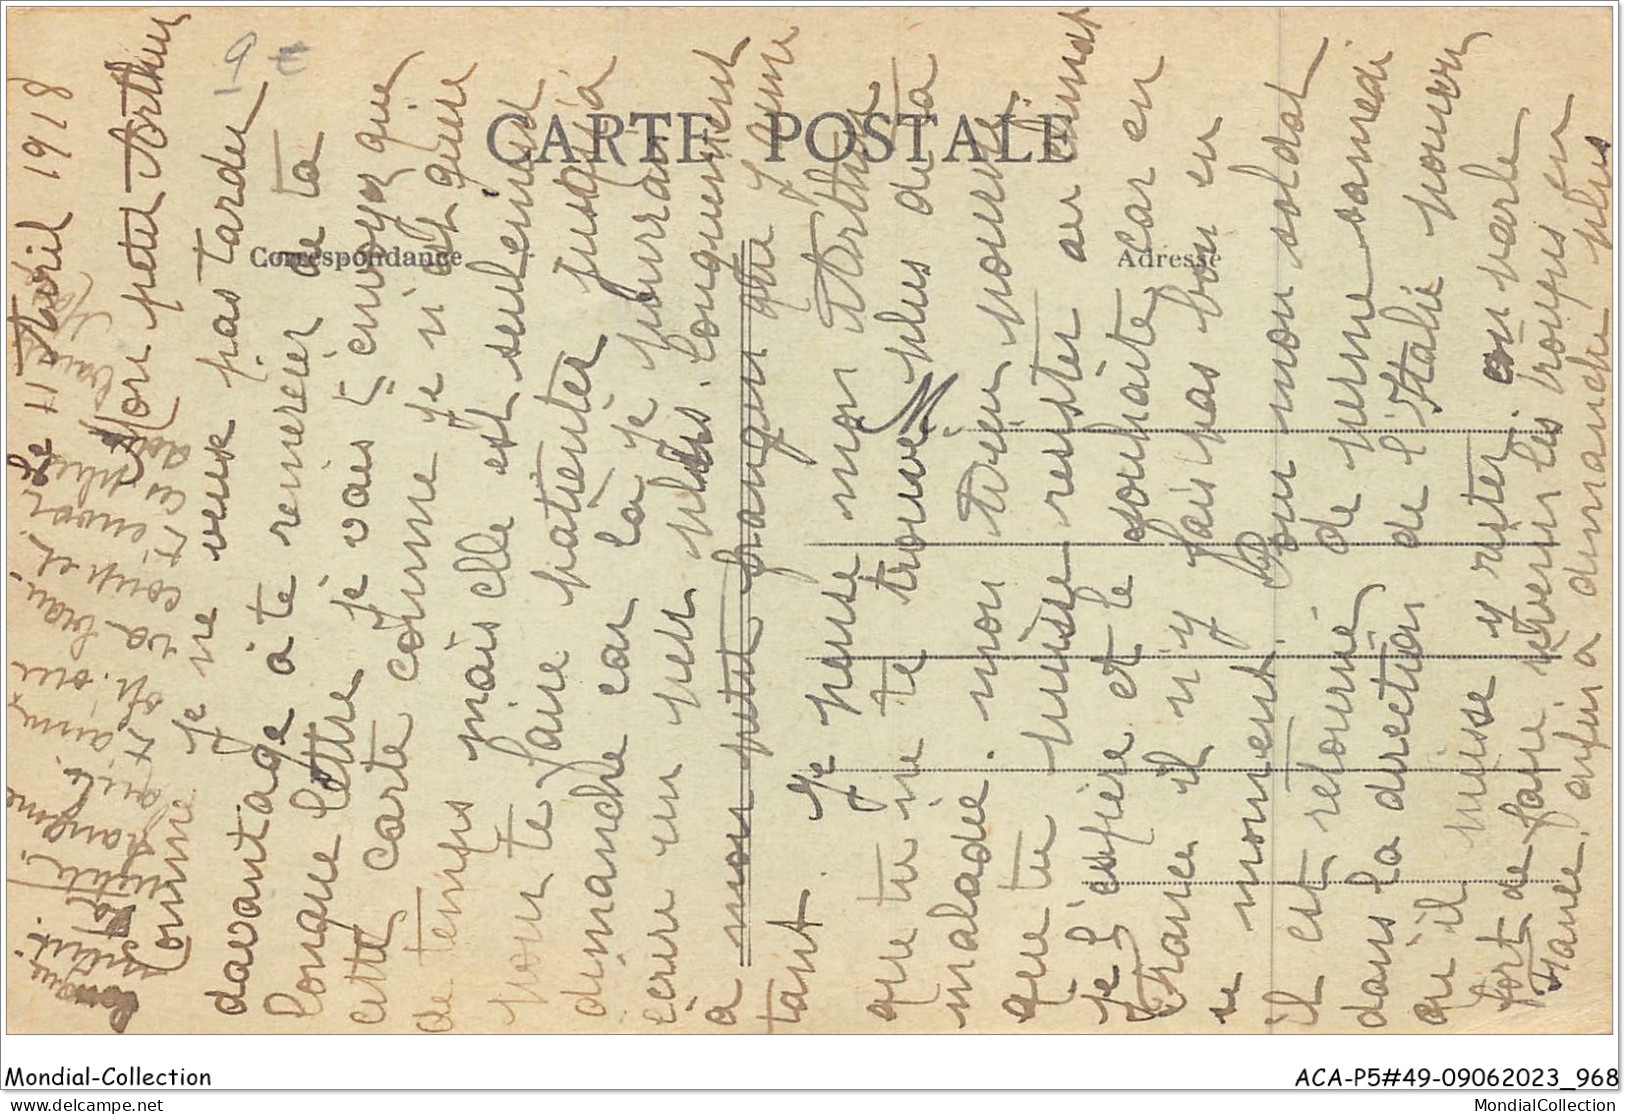 Le 11 Avril 1918
Mon petit Arthur
Comme je ne veux pas tarder
davantage à te remercier de ta
longue lettre je vais t'envoyer que
cette carte comme je n'ai guère
de temps mais elle est seulement
pour te faire patienter jusqu'à
dimanche car là je pourrai
écrire un peu plus longuement
a mon petit français que j'aime
tant. Je pense mon Arthur
que tu ne te trouve plus de ta
maladie. mon vieux pourvu
que tu puisse rester au climat
je l'espère et le souhaite, car en
France il n'y fais pas bon en
ce moment. Pour mon soldat
il est retourné de perme samedi
dans la direction de l'Italie pourvu
qu'il puisse y rester. on parle
fort de faire revenir les troupes en
France. enfin a dimanche plus
longuement
CARTE POSTALE
Correspondance
Adresse
9 €
Mondial-Collection
ACA-P5#49-09062023_968
www.delcampe.net
MondialCollection